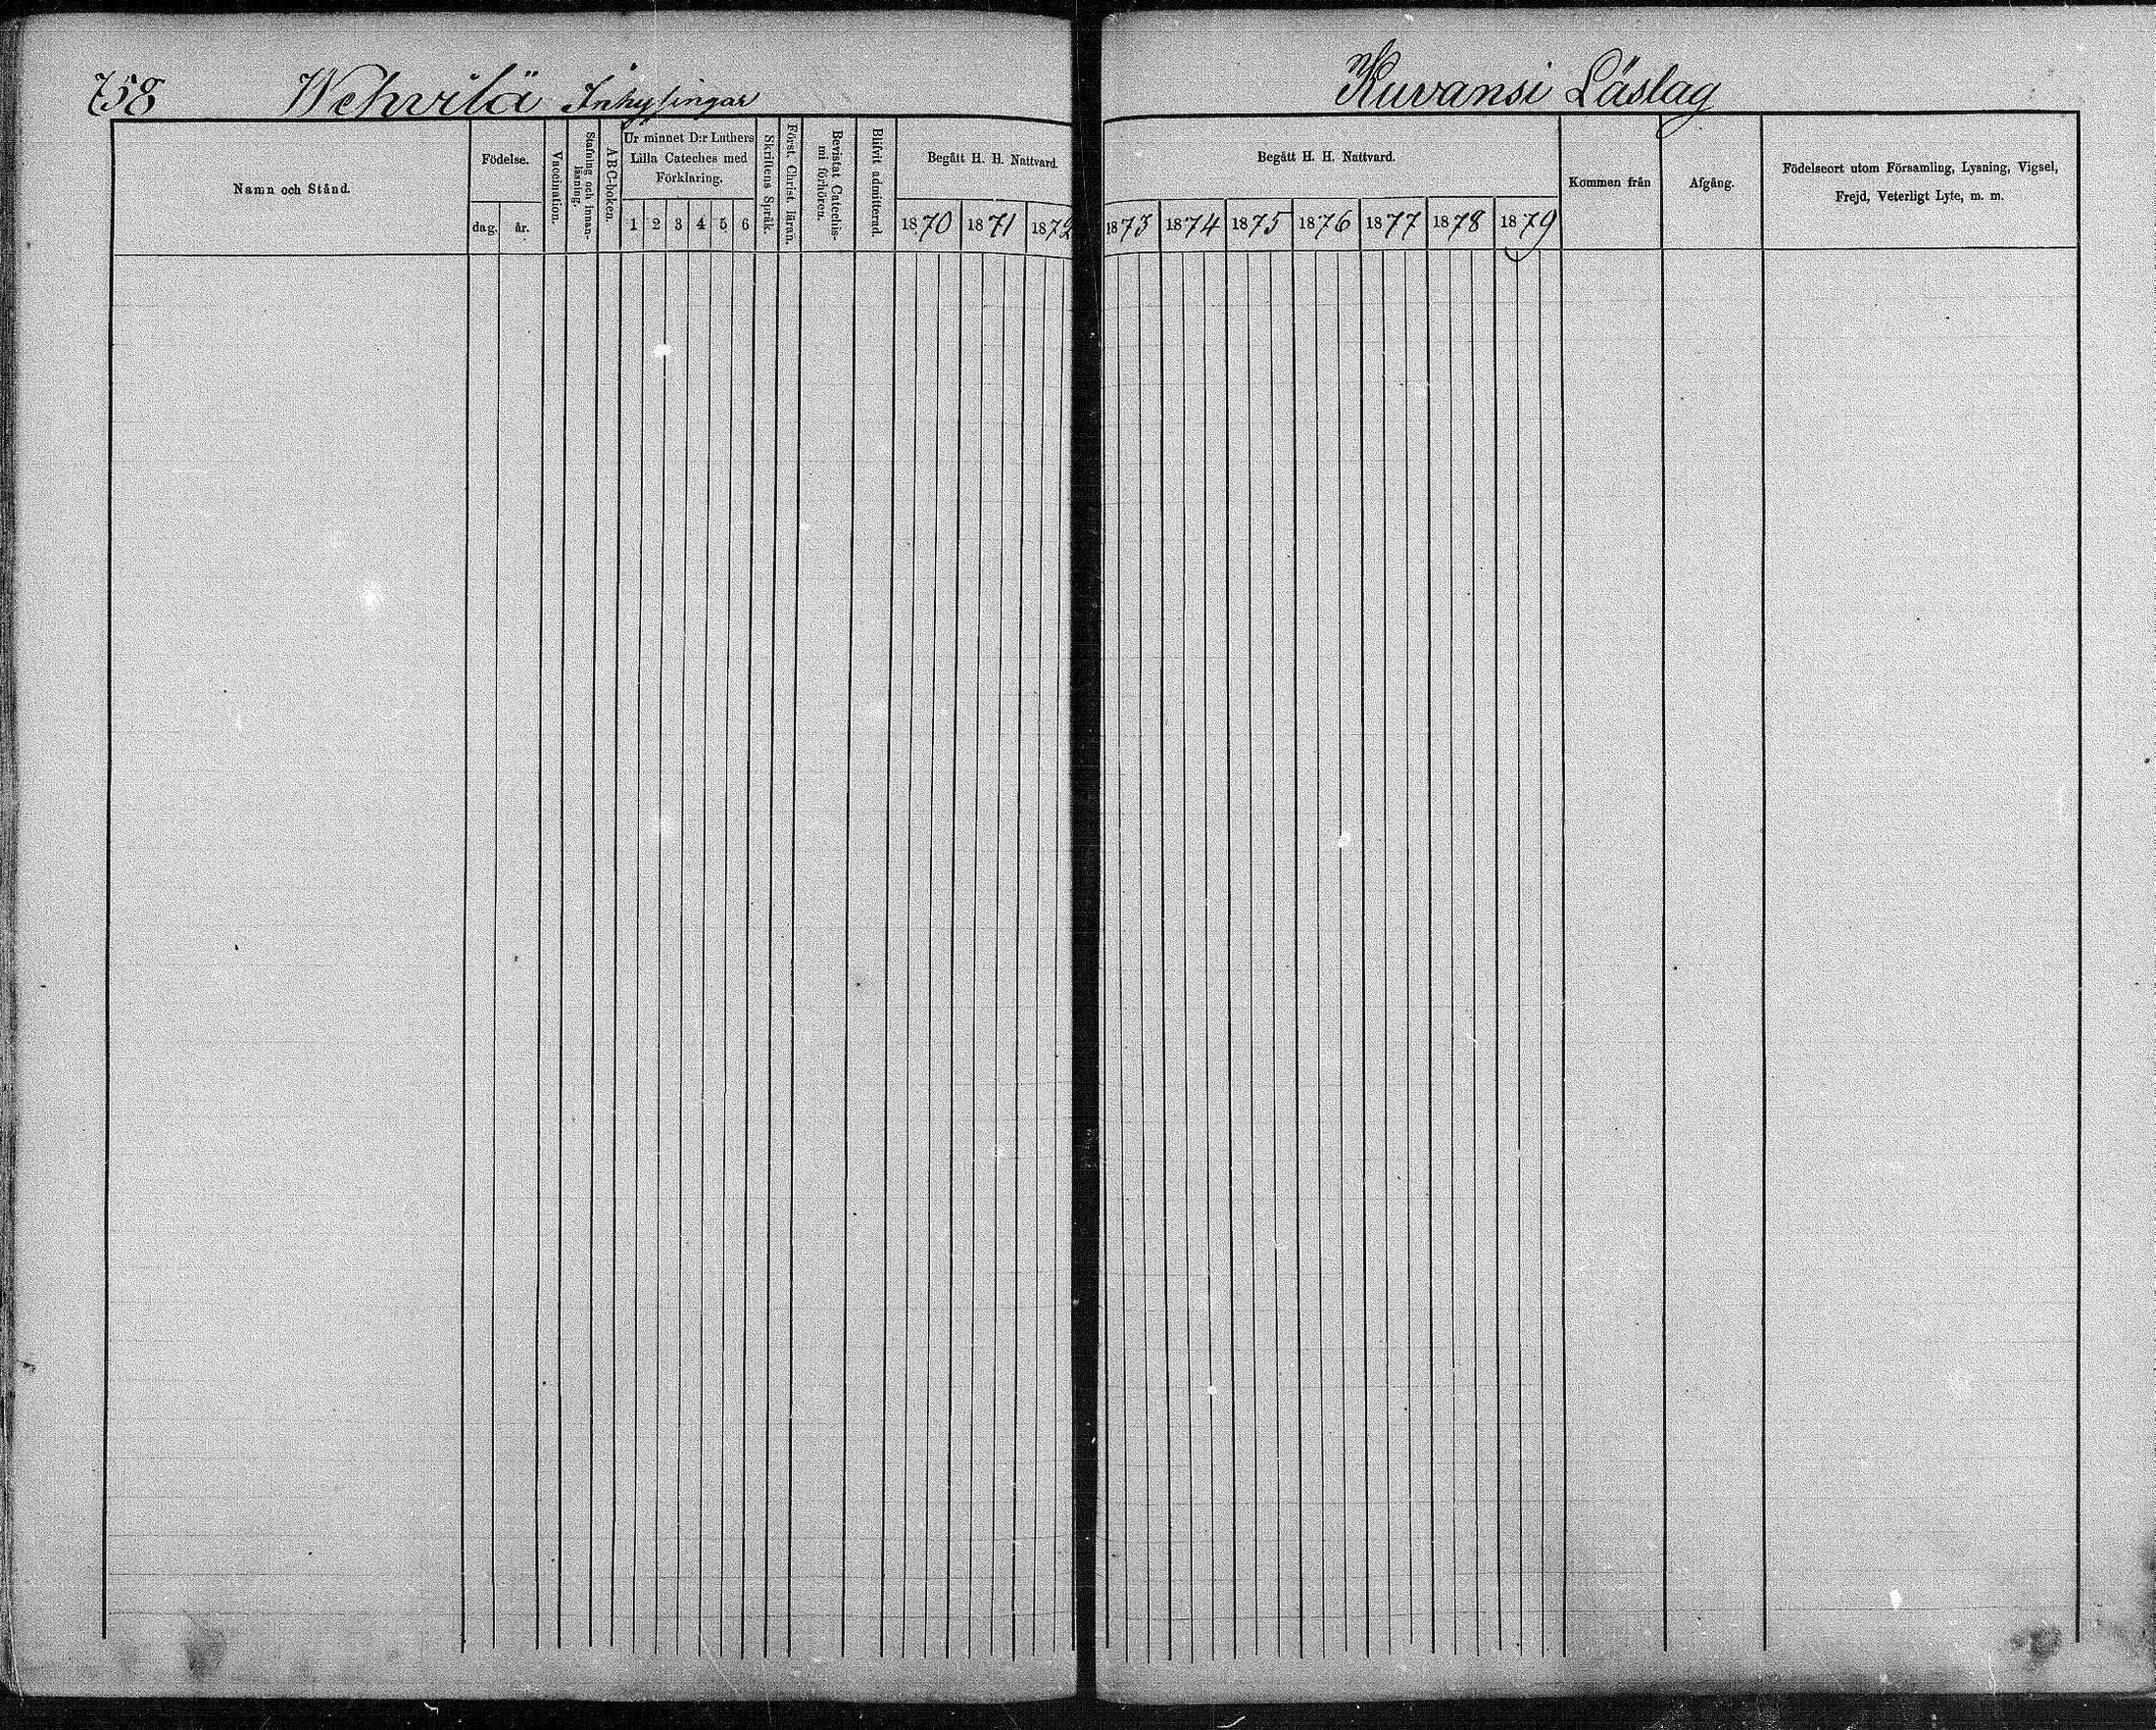 758 Wehvilä Inhysingar
Kuvansi Läslag
Namn och Stånd.
Födelse.
dag.
år.
Vaccination.
Stafning och innan-
läsning.
ABC-boken.
Ur minnet D:r Luthers
Lilla Cateches med
Förklaring.
1 2 3 4 5 6
Skriftens Språk.
Först. Christ. läran.
Bevistat Catechis-
mi förhören.
Blifvit admitterad.
Begått H. H. Nattvard.
1870 1871 1872
Begått H. H. Nattvard.
1873 1874 1875 1876 1877 1878 1879
Kommen från
Afgång.
Födelseort utom Församling, Lysning, Vigsel,
Frejd, Veterligt Lyte, m. m.